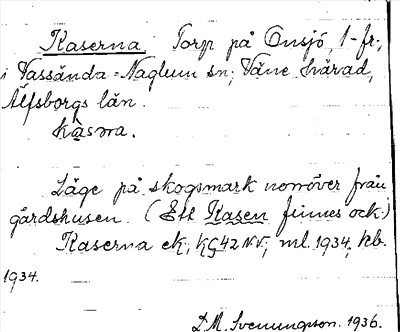 Kaserna Torp på Onsjö, 1-fr.,
i Vassända-Naglum sn; Väne härad,
Älfsborgs län.
Läge på skogsmark norröver från
gårdshusen. (Ett Kasen finnes ock)
Kaserna ek; KG42NV; ml. 1934, kb.
1934.
D.M. Svenungson. 1936.